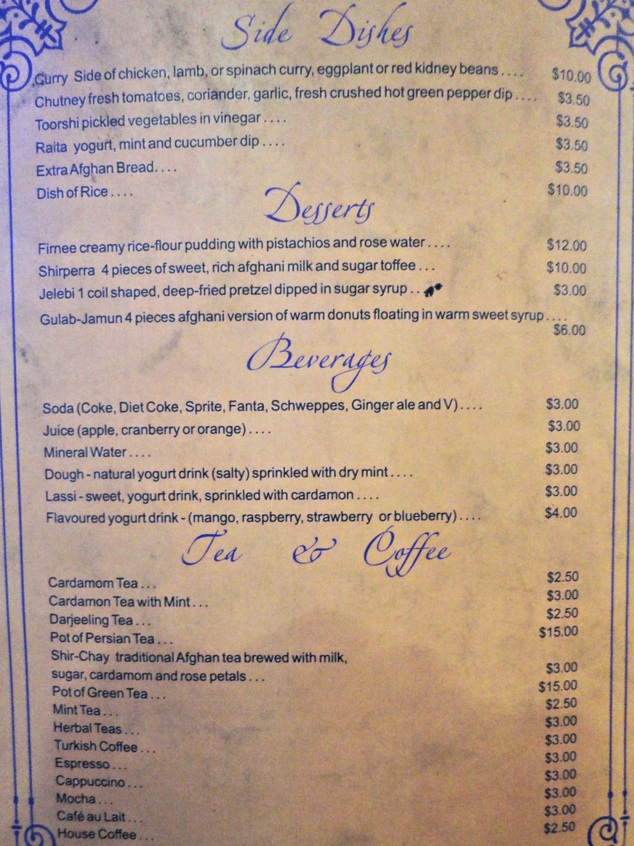 Side Dishes
Curry Side of chicken, lamb, or spinach curry, eggplant or red kidney beans.... $10.00
Chutney fresh tomatoes, coriander, garlic, fresh crushed hot green pepper dip.... $3.50
Toorshi pickled vegetables in vinegar.... $3.50
Raita yogurt, mint and cucumber dip.... $3.50
Extra Afghan Bread.... $3.50
Dish of Rice.... $10.00
Desserts
Firnee creamy rice-flour pudding with pistachios and rose water.... $12.00
Shirperra 4 pieces of sweet, rich afghani milk and sugar toffee... $10.00
Jelebi 1 coil shaped, deep-fried pretzel dipped in sugar syrup.. $3.00
Gulab-Jamun 4 pieces afghani version of warm donuts floating in warm sweet syrup....
$6.00
Beverages
Soda (Coke, Diet Coke, Sprite, Fanta, Schweppes, Ginger ale and V).... $3.00
Juice (apple, cranberry or orange).... $3.00
Mineral Water.... $3.00
Dough - natural yogurt drink (salty) sprinkled with dry mint.... $3.00
Lassi - sweet, yogurt drink, sprinkled with cardamon.... $3.00
Flavoured yogurt drink - (mango, raspberry, strawberry or blueberry).... $4.00
Tea & Coffee
Cardamom Tea... $2.50
Cardamon Tea with Mint... $3.00
Darjeeling Tea... $2.50
Pot of Persian Tea... $15.00
Shir-Chay traditional Afghan tea brewed with milk,
sugar, cardamom and rose petals... $3.00
Pot of Green Tea... $15.00
Mint Tea... $2.50
Herbal Teas... $3.00
Turkish Coffee... $3.00
Espresso... $3.00
Cappuccino... $3.00
Mocha... $3.00
Café au Lait... $3.00
House Coffee... $2.50